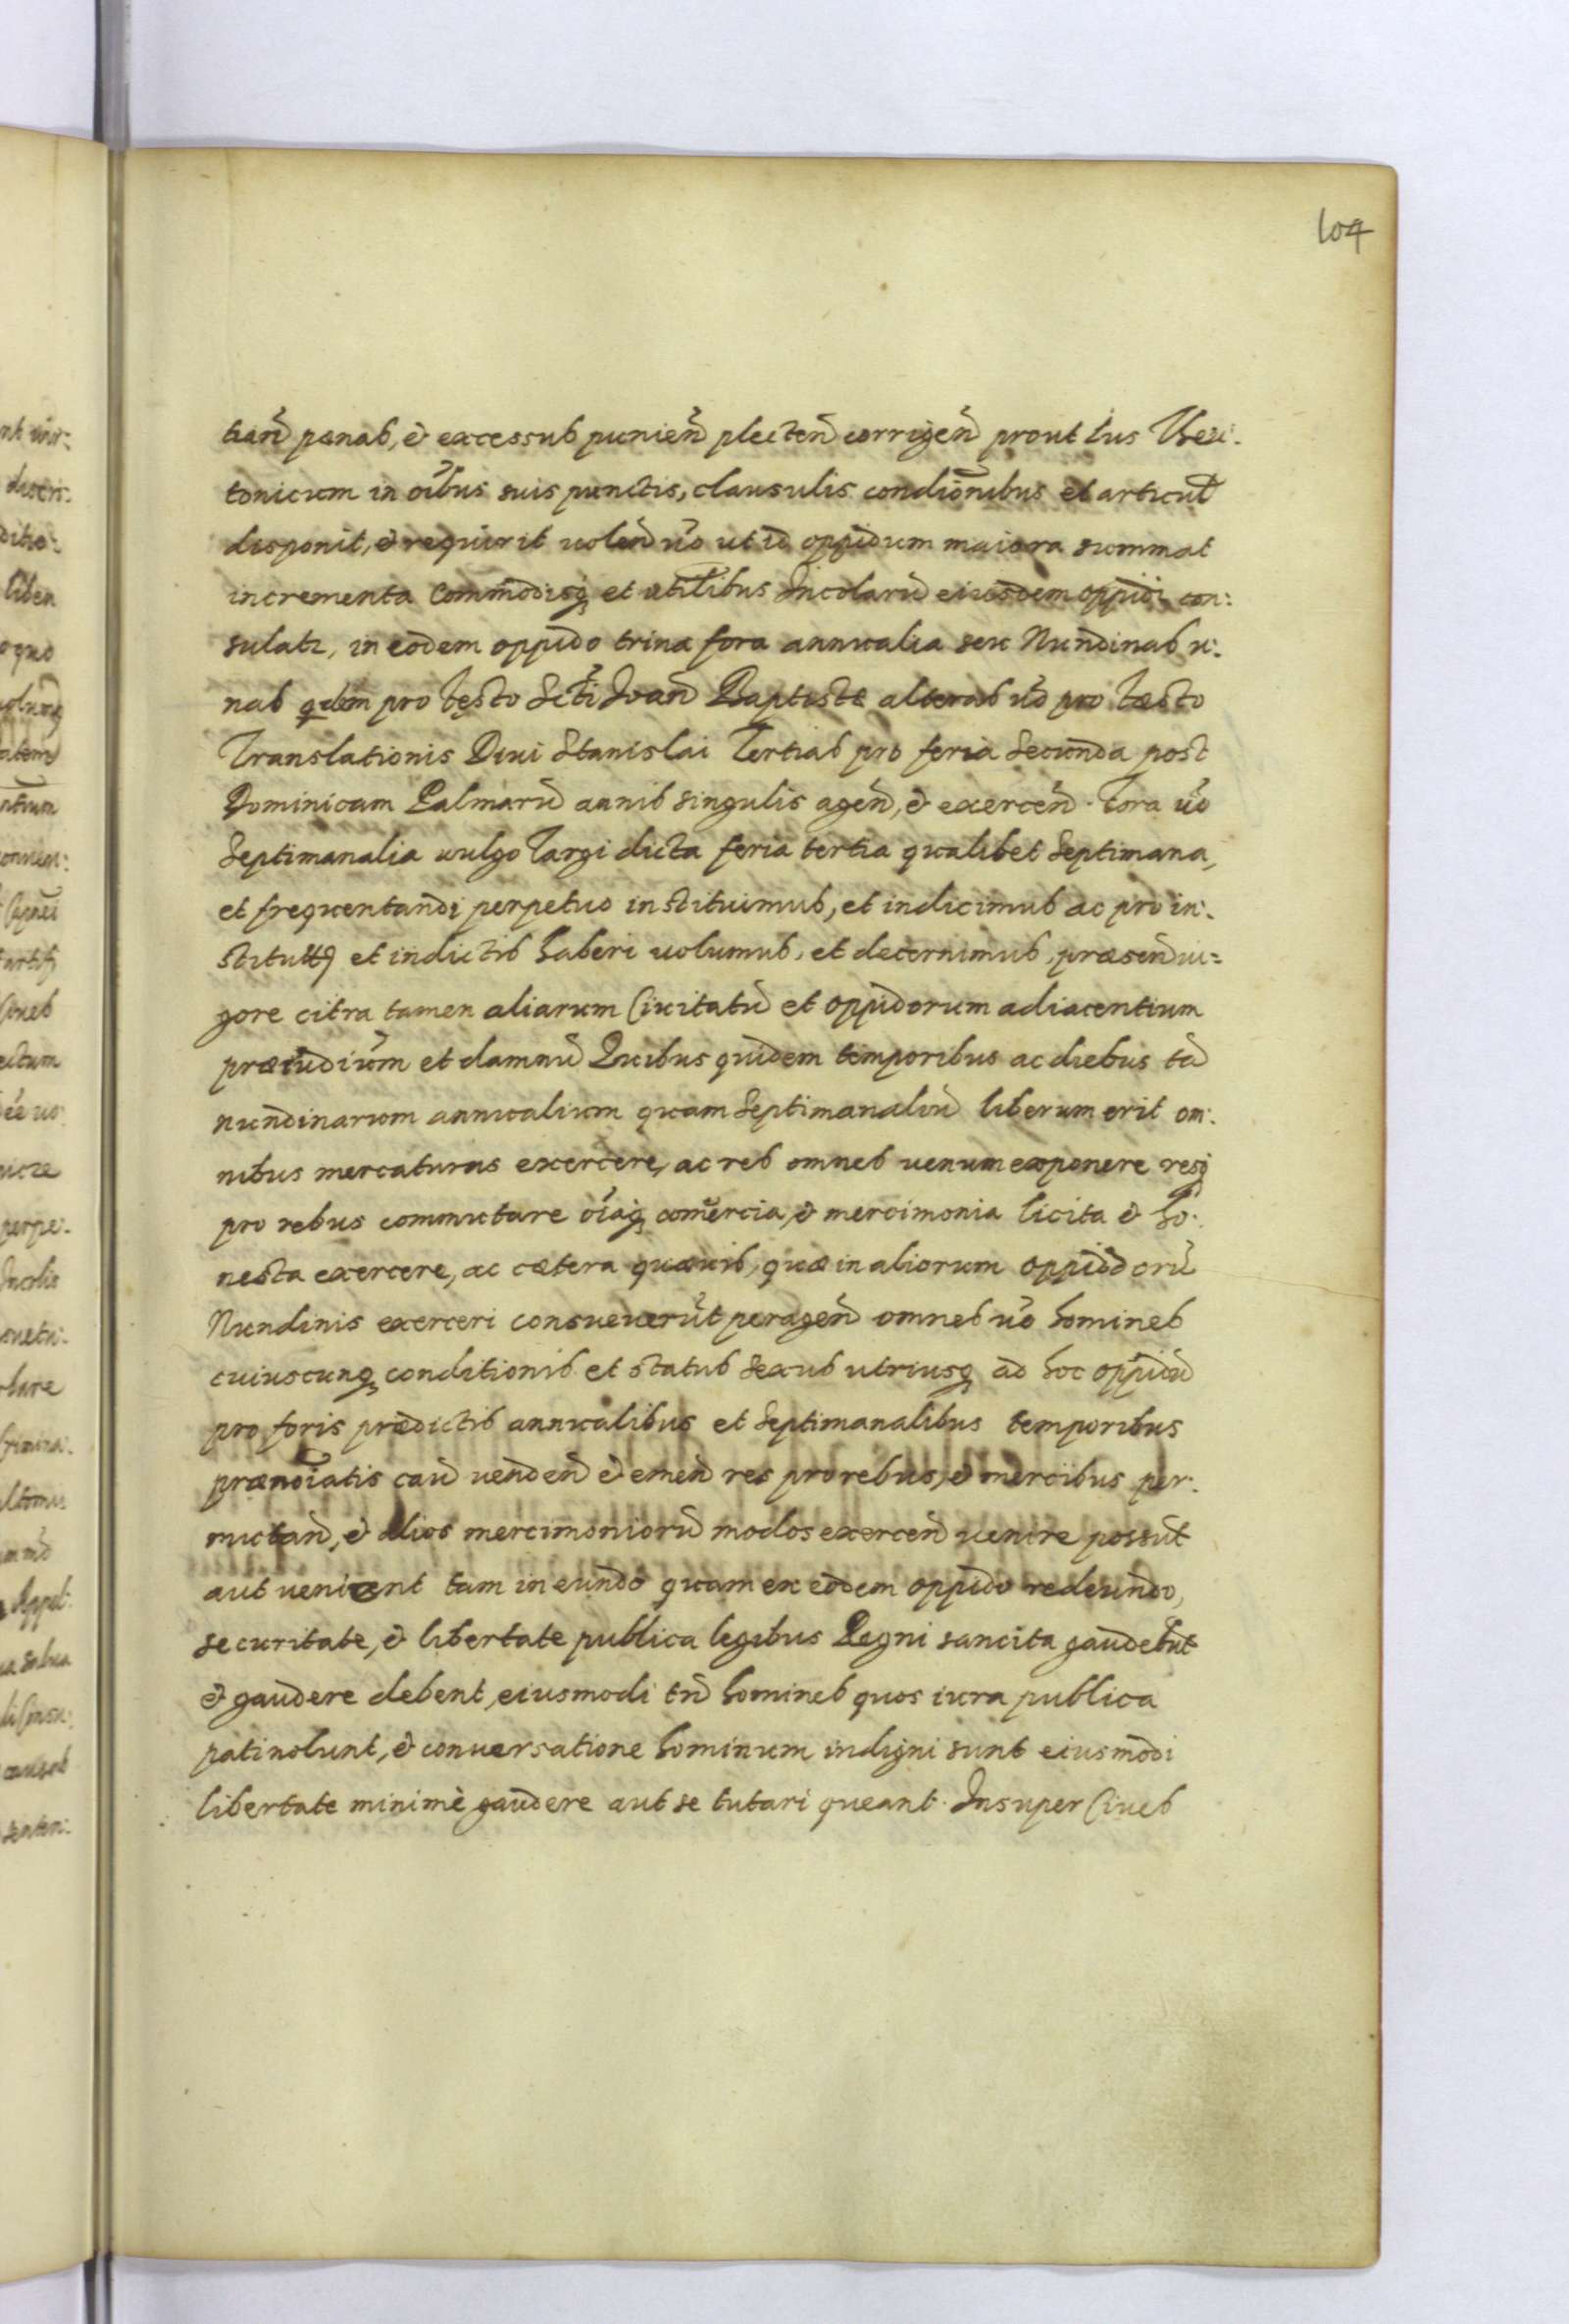 104
tiand pænas, et excessus puniend plectend corrigend prout Ius Theu:
tonicum in oibus suis punctis, clausulis condionibus et articul
disponit, et requirit uolend uo ut id oppidum maiora summat
incrementa commodisq et utilitibus Incolaru eiusdem oppidi con:
sulatr, in eodem oppido trina fora annualia seu Nundinas u:
nas qdem pro festo Scti Joan Baptistæ alteras uo pro festo
Translationis Diui Stanislai Tertias pro feria Secunda post
Dominicam Palmaru annis singulis agend, et exercend. Fora uo
Septimanalia uulgo Targi dicta feria tertia qualibet Septimana,
et frequentandi perpetuo instituimus, et indicimus ac pro in:
stitutis et indictis haberi uolumus, et decernimus, præsend ui:
gore citra tamen aliarum Ciuitatu et oppidorum adiacentium
præiudium et damnu Quibus quidem temporibus ac diebus ta
nundinarum annualium quam Septimanaliu liberum erit om:
nibus mercaturas exercere, ac res omnes uenum exponere resq
pro rebus commutare oiaq comercia, et mercimonia licita et ho:
nesta exercere, ac cætera quæuis, quæ in aliorum oppiddoru
Nundinis exerceri consueuerut peragend omnes uo homines
cuiuscunq conditionis et status sexus utriusq ad hoc oppidu
pro foris prædictis annualibus et Septimanalibus temporibus
prænoiatis cau uendend et emend res pro rebus, et mercibus per:
mutand, et alios mercimonioru modos exercend uenire possut
aut uenirent tam in eundo quam ex eodem oppido redeundo,
securitate, et libertate publica legibus Regni sancita gaudebut
et gaudere debent, eiusmodi tn homines quos iura publica
pati nolunt, et conuersatione hominum indigni sunt eiusmodi
libertate minimè gaudere aut se tutari queant. Insuper Ciues